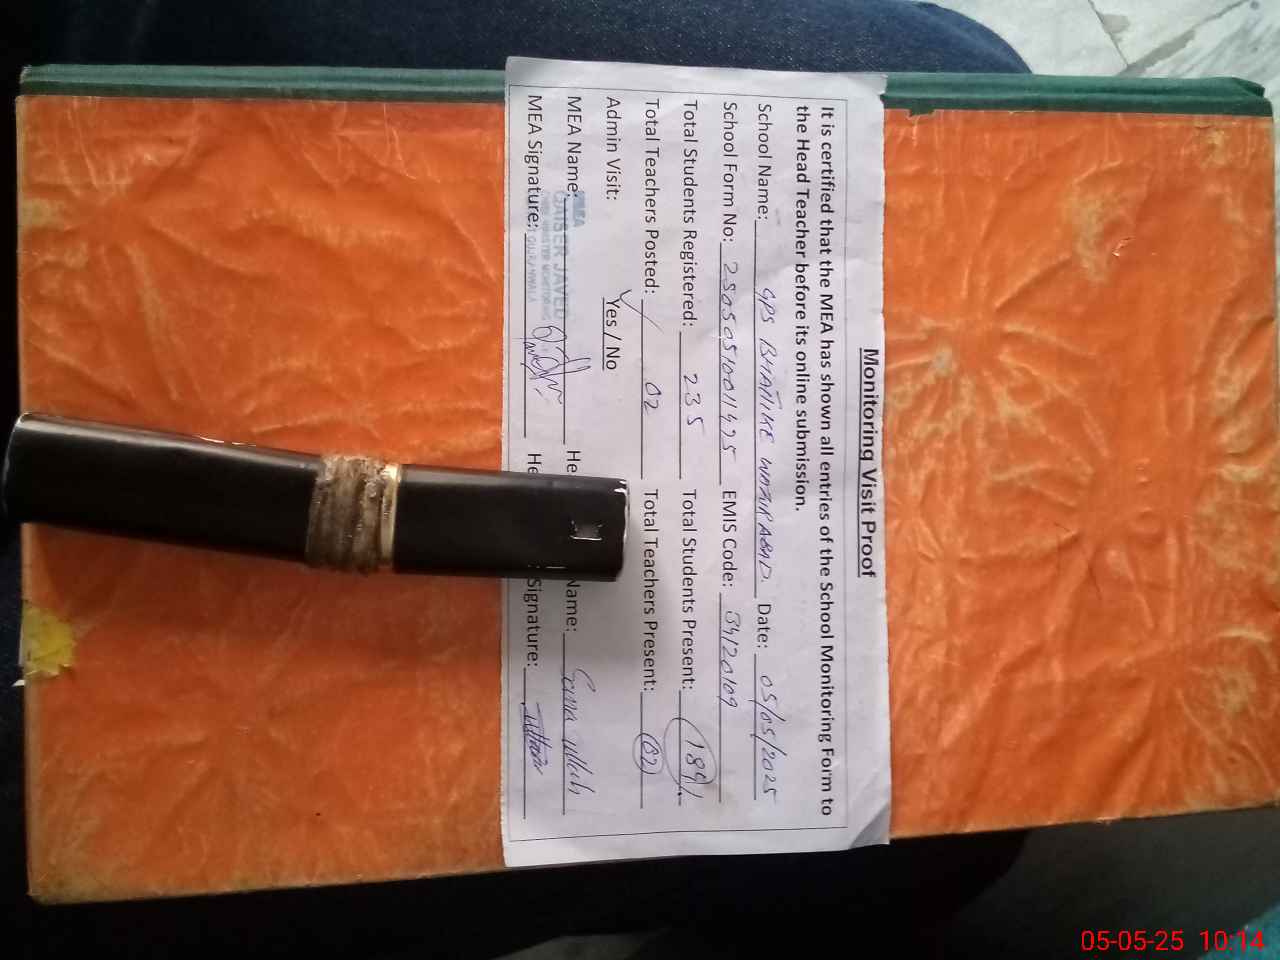 Monitoring Visit Proof
It is certified that the MEA has shown all entries of the School Monitoring Form to
the Head Teacher before its online submission.
School Name: GPS BHATIKE WAZIRABAD Date: 05/05/2025
School Form No: EMIS Code: 34120109
Total Students Registered: 235 Total Students Present: 189
Total Teachers Posted: 02 Total Teachers Present: 02
Admin Visit: Yes / No
MEA Name: He Name: Sana Ullah
QAISER JAVED
CHIEF MINISTER MONITORING
GUJRANWALA
MEA Signature: He Signature:
05-05-25 10:14